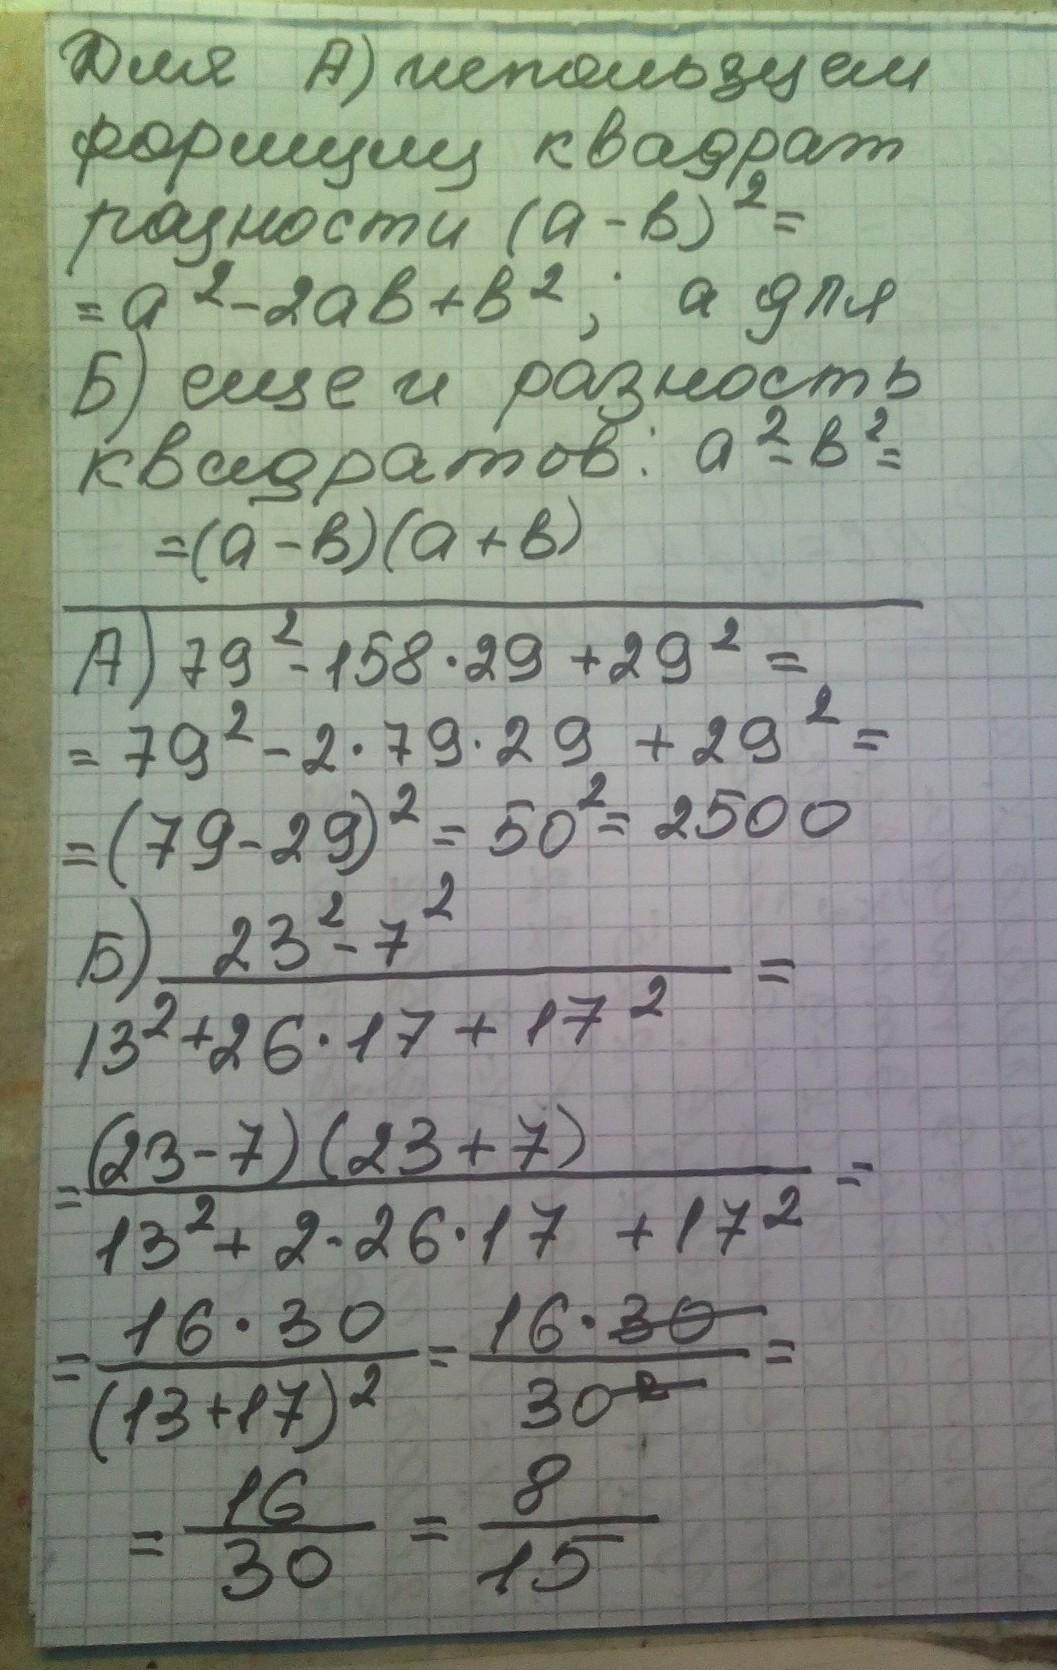 Для А) используем
формулу квадрат
разности (а-в)²=
=а²-2ав+в²; а для
Б) еще и разность
квадратов: а²-в²=
=(а-в)(а+в)
А) 79²-158·29+29²=
=79²-2·79·29+29²=
=(79-29)²=50²=2500
Б) (23²-7²)/(13²+26·17+17²)=
=((23-7)(23+7))/(13²+2·26·17+17²)=
=(16·30)/((13+17)²)=(16·30)/(30²)=
=16/30=8/15